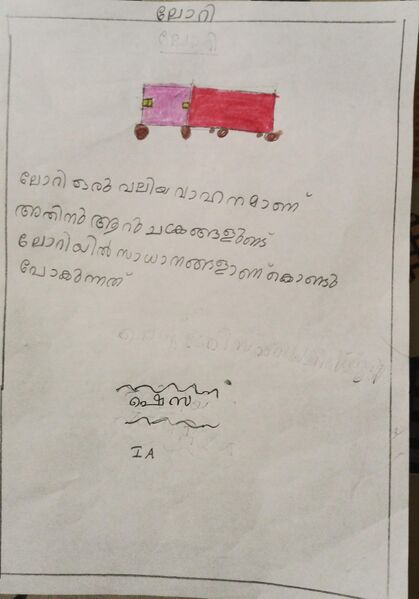 ലോറി
ലോറി
ലോറി ഒരു വലിയ വാഹനമാണ്
അതിനു ആറു ചക്രങ്ങളുണ്ട്
ലോറിയിൽ സാധാനങ്ങളാണ് കൊണ്ടു
പോകുന്നത്
ഷെസ
IA